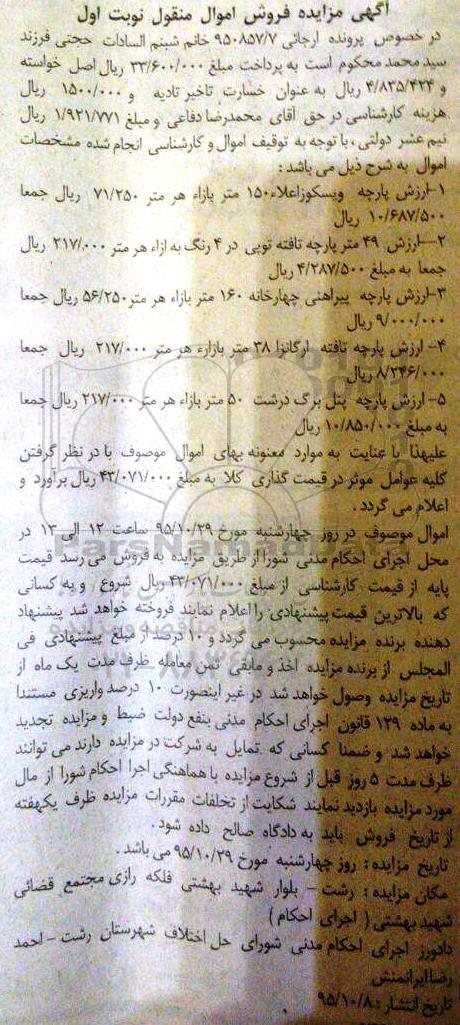 آگهی مزایده فروش اموال منقول نوبت اول
در خصوص پرونده ارجائی ۹۵۰۸۵۷/۷ خانم شبنم السادات حجتی فرزند
سید محمد محکوم است به پرداخت مبلغ ۳۳/۶۰۰/۰۰۰ ریال اصل خواسته
و ۴/۸۳۵/۴۲۴ ریال به عنوان خسارت تاخیر تادیه و ۱۵۰۰/۰۰۰ ریال
هزینه کارشناسی در حق آقای محمدرضا دفاعی و مبلغ ۱/۹۲۱/۷۷۱ ریال
نیم عشر دولتی ، با توجه به توقیف اموال و کارشناسی انجام شده مشخصات
اموال به شرح ذیل می باشد :
۱-ارزش پارچه ویسکوز اعلاء ۱۵۰ متر بازاء هر متر ۷۱/۲۵۰ ریال جمعا
۱۰/۶۸۷/۵۰۰ ریال
۲-ارزش ۴۹ متر پارچه تافته توپی در ۴ رنگ به ازاء هر متر ۲۱۷/۰۰۰ ریال
جمعا به مبلغ ۴/۲۸۷/۵۰۰ ریال
۳-ارزش پارچه پیراهنی چهارخانه ۱۶۰ متر بازاء هر متر ۵۶/۲۵۰ ریال جمعا
۹/۰۰۰/۰۰۰ ریال
۴- ارزش پارچه تافته ارگانزا ۳۸ متر بازارء هر متر ۲۱۷/۰۰۰ ریال جمعا
۸/۲۴۶/۰۰۰ ریال
۵- ارزش پارچه پتل برگ درشت ۵۰ متر بازاء هر متر ۲۱۷/۰۰۰ ریال جمعا
به مبلغ ۱۰/۸۵۰/۰۰۰ ریال
علیهذا با عنایت به موارد معنونه بهای اموال موصوف با در نظر گرفتن
کلیه عوامل موثر در قیمت گذاری کلا به مبلغ ۴۳/۰۷۱/۰۰۰ ریال برآورد و
اعلام می گردد .
اموال موصوف در روز چهارشنبه مورخ ۹۵/۱۰/۲۹ ساعت ۱۲ الی ۱۳ در
محل اجرای احکام مدنی شورا از طریق مزایده به فروش می رسد قیمت
پایه از قیمت کارشناسی از مبلغ ۴۳/۰۷۱/۰۰۰ ریال شروع و به کسانی
که بالاترین قیمت پیشنهادی را اعلام نمایند فروخته خواهد شد پیشنهاد
دهنده برنده مزایده محسوب می گردد و ۱۰ درصد از مبلغ پیشنهادی فی
المجلس از برنده مزایده اخذ و مابقی ثمن معامله ظرف مدت یک ماه از
تاریخ مزایده وصول خواهد شد در غیر اینصورت ۱۰ درصد واریزی مستندا
به ماده ۱۲۹ قانون اجرای احکام مدنی بنفع دولت ضبط و مزایده تجدید
خواهد شد و ضمنا کسانی که تمایل به شرکت در مزایده دارند می توانند
ظرف مدت ۵ روز قبل از شروع مزایده با هماهنگی اجرا احکام شورا از مال
مورد مزایده بازدید نمایند شکایت از تخلفات مقررات مزایده ظرف یکهفته
از تاریخ فروش باید به دادگاه صالح داده شود .
تاریخ مزایده : روز چهارشنبه مورخ ۹۵/۱۰/۲۹ می باشد .
مکان مزایده : رشت - بلوار شهید بهشتی فلکه رازی مجتمع قضائی
شهید بهشتی ( اجرای احکام )
دادورز اجرای احکام مدنی شورای حل اختلاف شهرستان رشت - احمد
رضا ایرانمنش
تاریخ انتشار : ۹۵/۱۰/۸